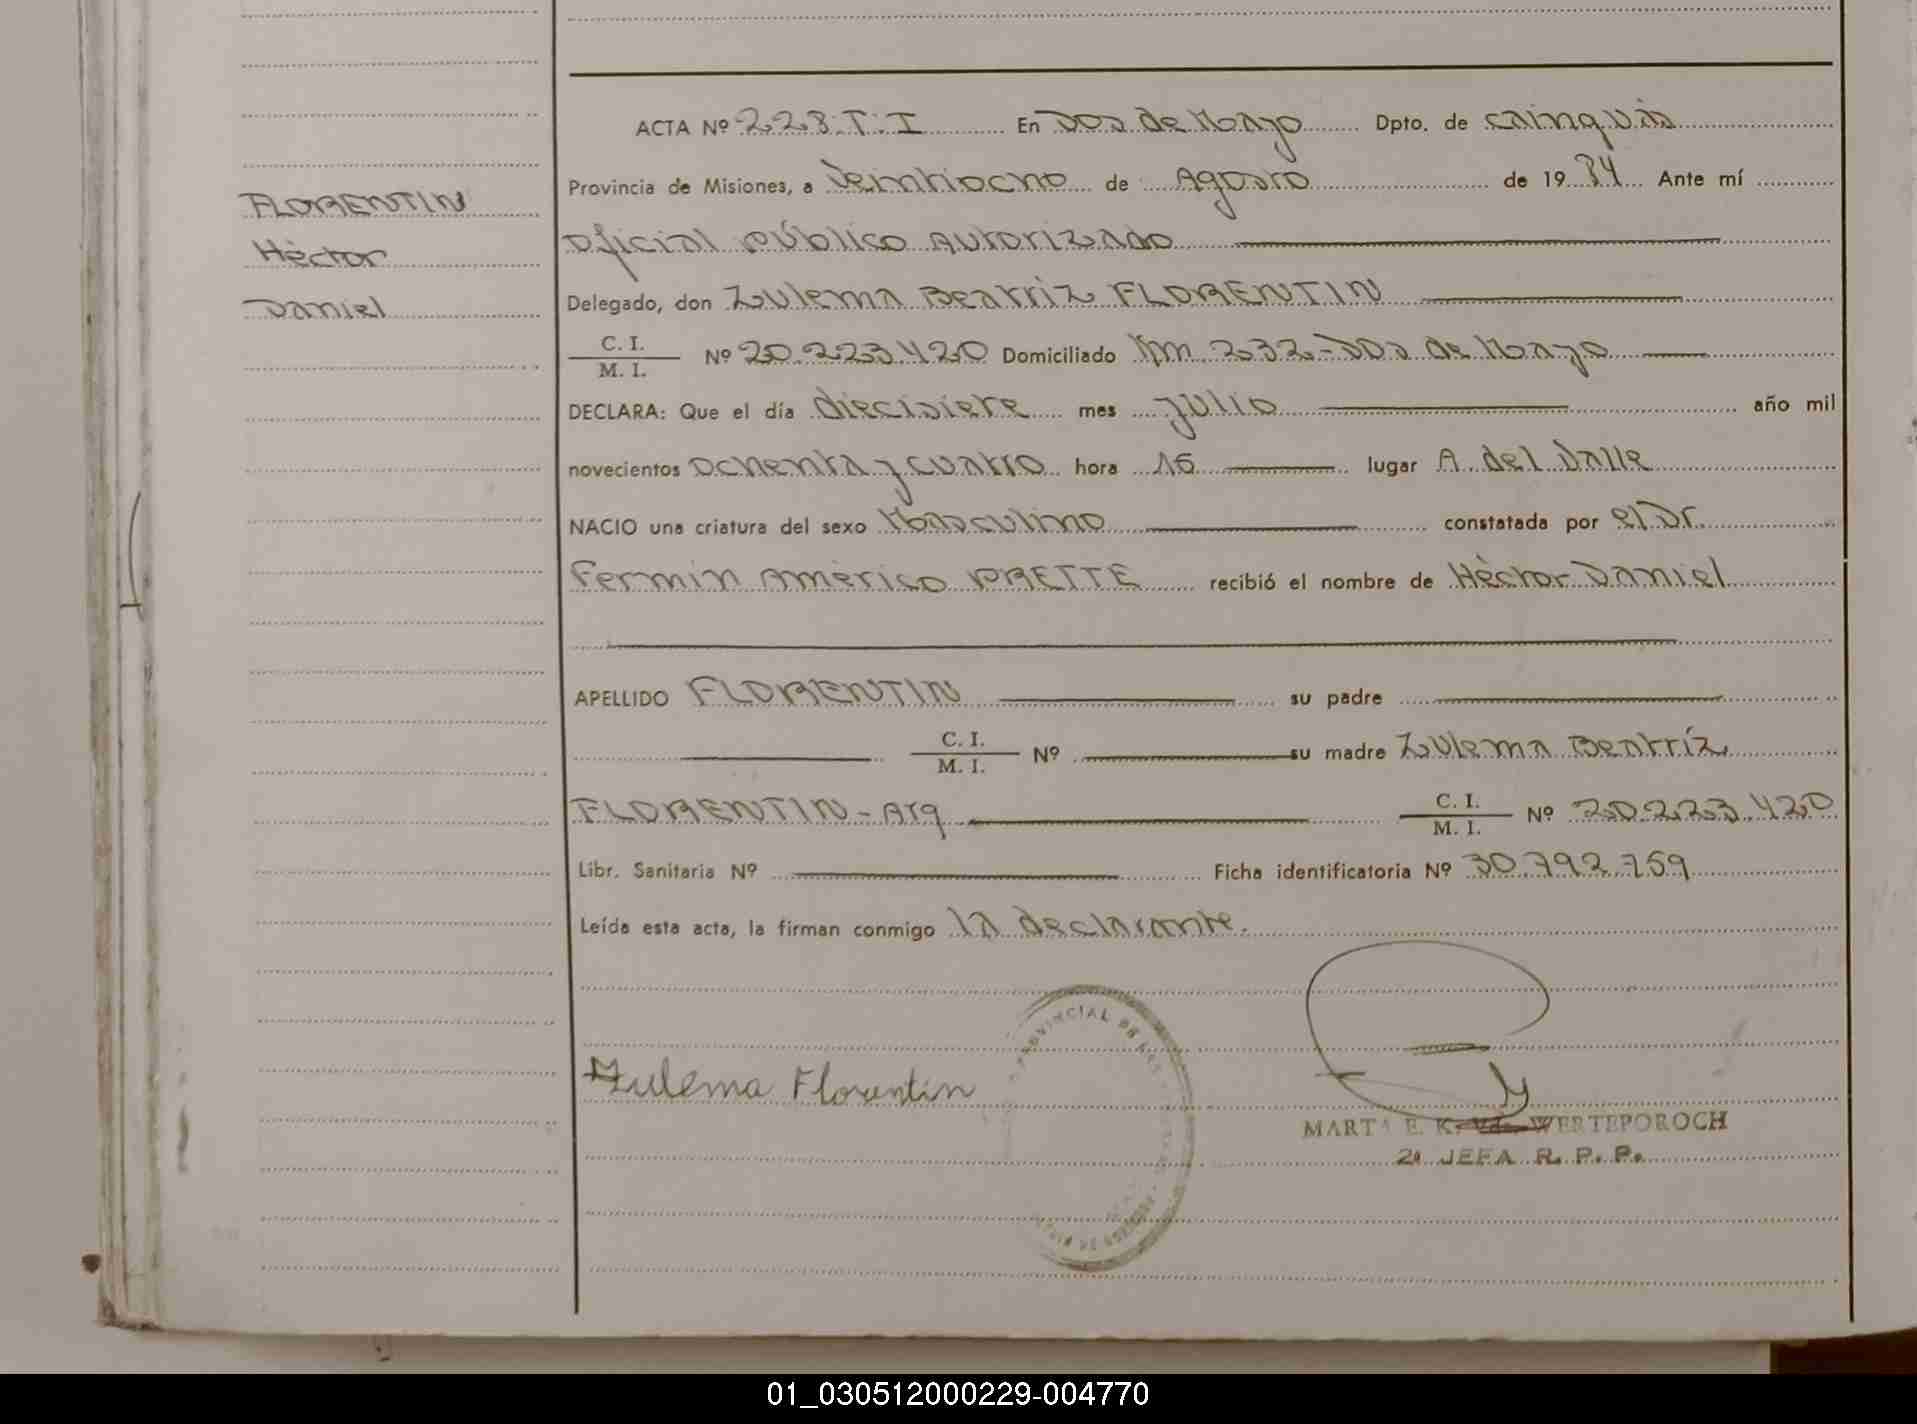 FLORENTIN
Héctor
Daniel
ACTA Nº 228. T. I En Dos de Mayo Dpto. de Cainguás
Provincia de Misiones, a Veintiocho de Agosto de 1984 Ante mí
Oficial Público Autorizado
Delegado, don Zulema Beatriz FLORENTIN
C. I.
M. I. Nº 20.223.420 Domiciliado Km 232-Dos de Mayo
DECLARA: Que el día diecisiete mes julio año mil
novecientos ochenta y cuatro hora 16 lugar A. del Valle
NACIO una criatura del sexo Masculino constatada por el Dr.
Fermin Américo PRETTE recibió el nombre de Héctor Daniel
APELLIDO FLORENTIN su padre
C. I.
M. I. Nº su madre Zulema Beatríz
FLORENTIN - Arg C. I.
M. I. Nº 20.223.420
Libr. Sanitaria Nº Ficha identificatoria Nº 30.792.759
Leída esta acta, la firman conmigo la declarante.
PROVINCIAL
Zulema Florentin
MARTA E. K. WERTEPOROCH
2a JEFA R. P. P.
01_030512000229-004770